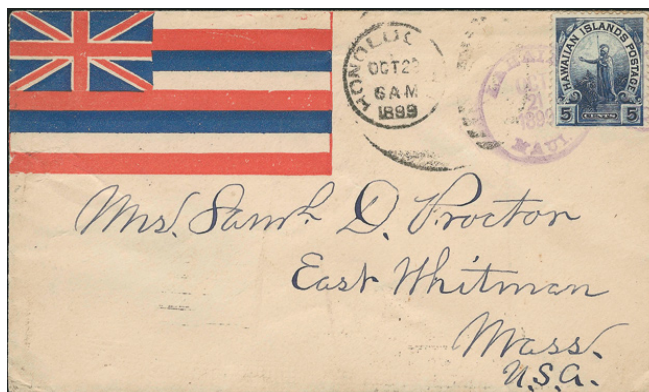 HONOLU
OCT 2
6 AM
1899
OCT
21
1899
MAUI.
HAWAIIAN ISLANDS POSTAGE
5 CENTS 5
Mrs. Saml. D. Proctor
East Whitman
Mass.
U.S.A.